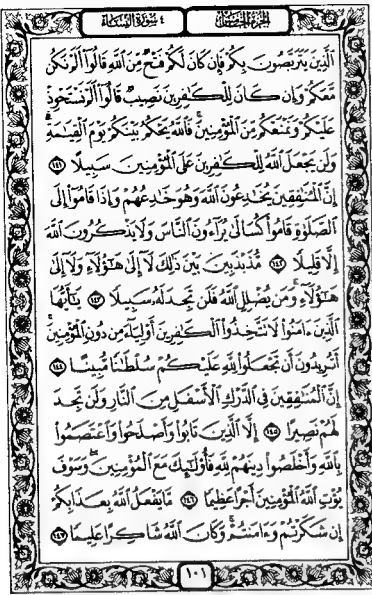 الجزء الخامس
٤ سورة النساء
ٱلَّذِينَ يَتَرَبَّصُونَ بِكُمْ فَإِن كَانَ لَكُمْ فَتْحٌ مِّنَ ٱللَّهِ قَالُوٓا۟ أَلَمْ نَكُن
مَّعَكُمْ وَإِن كَانَ لِلْكَٰفِرِينَ نَصِيبٌ قَالُوٓا۟ أَلَمْ نَسْتَحْوِذْ
عَلَيْكُمْ وَنَمْنَعْكُم مِّنَ ٱلْمُؤْمِنِينَ ۚ فَٱللَّهُ يَحْكُمُ بَيْنَكُمْ يَوْمَ ٱلْقِيَٰمَةِ ۗ
وَلَن يَجْعَلَ ٱللَّهُ لِلْكَٰفِرِينَ عَلَى ٱلْمُؤْمِنِينَ سَبِيلًا ١٤١
إِنَّ ٱلْمُنَٰفِقِينَ يُخَٰدِعُونَ ٱللَّهَ وَهُوَ خَٰدِعُهُمْ وَإِذَا قَامُوٓا۟ إِلَى
ٱلصَّلَوٰةِ قَامُوا۟ كُسَالَىٰ يُرَآءُونَ ٱلنَّاسَ وَلَا يَذْكُرُونَ ٱللَّهَ
إِلَّا قَلِيلًا ١٤٢ مُّذَبْذَبِينَ بَيْنَ ذَٰلِكَ لَآ إِلَىٰ هَٰٓؤُلَآءِ وَلَآ إِلَىٰ
هَٰٓؤُلَآءِ ۚ وَمَن يُضْلِلِ ٱللَّهُ فَلَن تَجِدَ لَهُۥ سَبِيلًا ١٤٣ يَٰٓأَيُّهَا
ٱلَّذِينَ ءَامَنُوا۟ لَا تَتَّخِذُوا۟ ٱلْكَٰفِرِينَ أَوْلِيَآءَ مِن دُونِ ٱلْمُؤْمِنِينَ ۚ
أَتُرِيدُونَ أَن تَجْعَلُوا۟ لِلَّهِ عَلَيْكُمْ سُلْطَٰنًا مُّبِينًا ١٤٤
إِنَّ ٱلْمُنَٰفِقِينَ فِى ٱلدَّرْكِ ٱلْأَسْفَلِ مِنَ ٱلنَّارِ وَلَن تَجِدَ
لَهُمْ نَصِيرًا ١٤٥ إِلَّا ٱلَّذِينَ تَابُوا۟ وَأَصْلَحُوا۟ وَٱعْتَصَمُوا۟
بِٱللَّهِ وَأَخْلَصُوا۟ دِينَهُمْ لِلَّهِ فَأُو۟لَٰٓئِكَ مَعَ ٱلْمُؤْمِنِينَ ۖ وَسَوْفَ
يُؤْتِ ٱللَّهُ ٱلْمُؤْمِنِينَ أَجْرًا عَظِيمًا ١٤٦ مَّا يَفْعَلُ ٱللَّهُ بِعَذَابِكُمْ
إِن شَكَرْتُمْ وَءَامَنتُمْ ۚ وَكَانَ ٱللَّهُ شَاكِرًا عَلِيمًا ١٤٧
١٠١